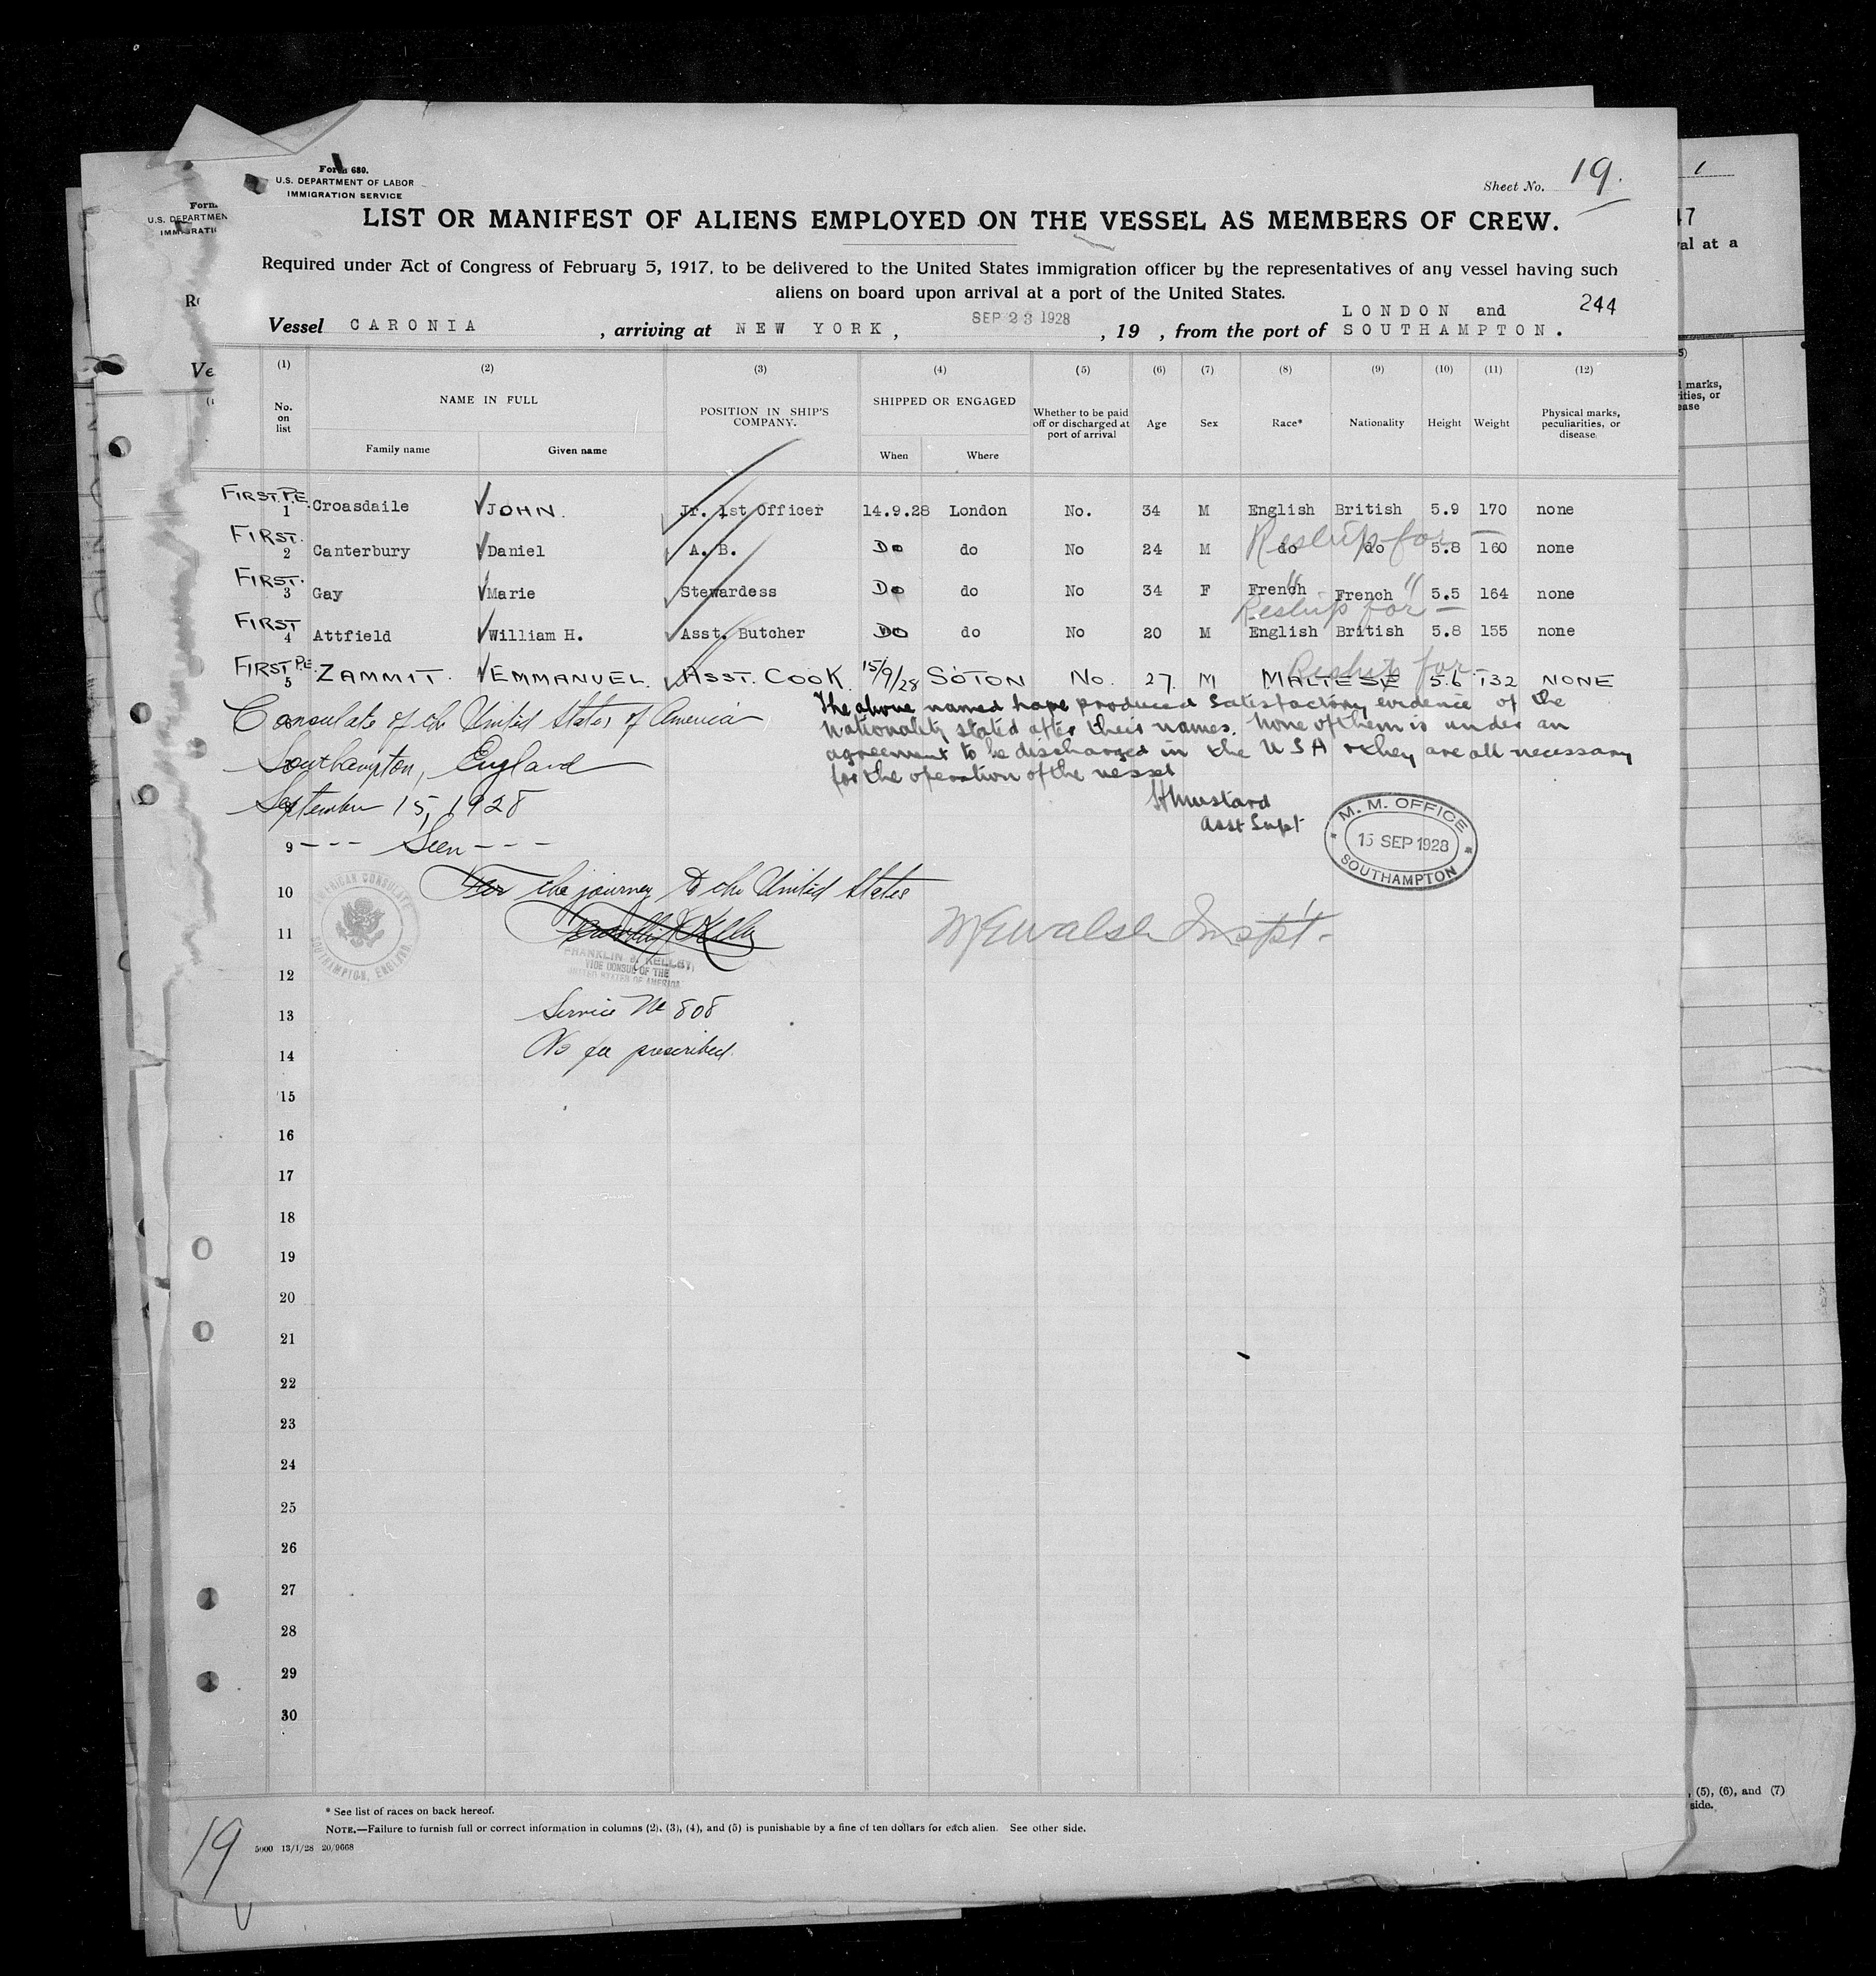 Form 680.
U.S. DEPARTMENT OF LABOR
IMMIGRATION SERVICE
Sheet No. 19.
LIST OR MANIFEST OF ALIENS EMPLOYED ON THE VESSEL AS MEMBERS OF CREW.
Required under Act of Congress of February 5, 1917, to be delivered to the United States immigration officer by the representatives of any vessel having such
aliens on board upon arrival at a port of the United States.
244
Vessel CARONIA , arriving at NEW YORK, SEP 23 1928 , 19 , from the port of LONDON and SOUTHAMPTON.
(1) (2) (3) (4) (5) (6) (7) (8) (9) (10) (11) (12)
No. on list NAME IN FULL POSITION IN SHIP'S COMPANY. SHIPPED OR ENGAGED Whether to be paid off or discharged at port of arrival Age Sex Race* Nationality Height Weight Physical marks, peculiarities, or disease
Family name Given name When Where
FIRST. P.E. 1 Croasdaile JOHN. Jr. 1st Officer 14.9.28 London No. 34 M English British 5.9 170 none
FIRST. 2 Canterbury Daniel A. B. Do do No 24 M do do 5.8 160 none
Reship for —
FIRST. 3 Gay Marie Stewardess Do do No 34 F French French 5.5 164 none
" "
Reship for —
FIRST 4 Attfield William H. Asst. Butcher Do do No 20 M English British 5.8 155 none
FIRST P.E. 5 ZAMMIT. EMMANUEL. ASST. COOK. 15/9/28 SOTON No. 27. M MALTESE 5.6 132 NONE
Reship for —
Consulate of the United States of America
Southampton, England
September 15, 1928
9 --- Seen ---
For the journey to the United States
The above named have produced satisfactory evidence of the
nationality stated after their names. None of them is under an
agreement to be discharged in the USA & they are all necessary
for the operation of the vessel
H Mustard
Asst Supt
M. M. OFFICE
15 SEP 1928
SOUTHAMPTON
AMERICAN CONSULATE
SOUTHAMPTON, ENGLAND.
VICE CONSUL OF THE
UNITED STATES OF AMERICA
Walsh Inspt.
Service No 808
No fee prescribed.
10
11
12
13
14
15
16
17
18
19
20
21
22
23
24
25
26
27
28
29
30
* See list of races on back hereof.
NOTE.—Failure to furnish full or correct information in columns (2), (3), (4), and (5) is punishable by a fine of ten dollars for each alien. See other side.
5000 13/1/28 20/9668
19
Form
U.S. DEPARTMEN
IMMIGRATI
Ve
1
47
val at a
marks,
ities, or
ease
, (5), (6), and (7)
side.